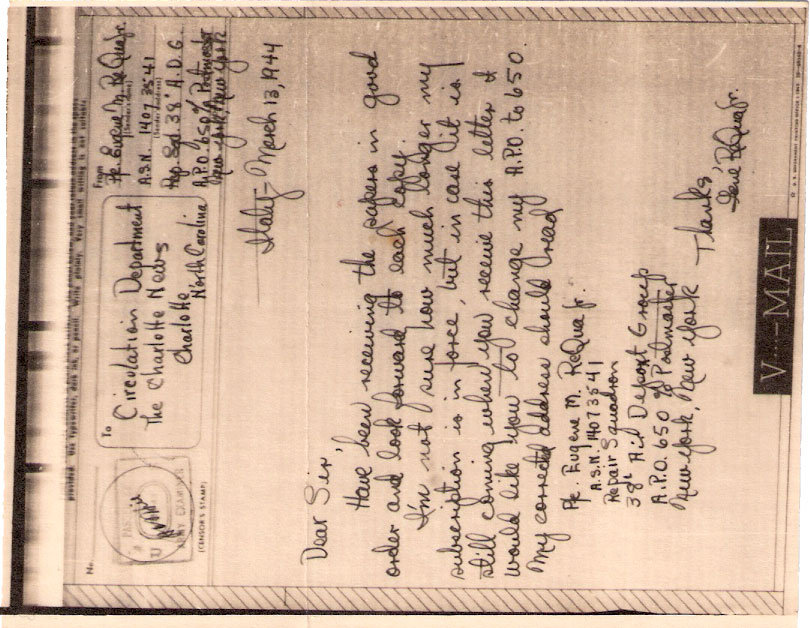 provided. Use typewriter, dark ink, or pencil. Write plainly. Very small writing is not suitable.
No.
(CENSOR'S STAMP)
To
Circulation Department
The Charlotte News
Charlotte
North Carolina
From
Pfc. Eugene M. ReQua Jr.
(Sender's name)
A.S.N. 14073541
(Sender's address)
Rep. Sqd. 38th A.D.G.
A.P.O. 650 % Postmaster
New York, New York
Italy - March 13, 1944
Dear Sir,
Have been receiving the papers in good
order and look forward to each copy.
I'm not sure how much longer my
subscription is in force, but in case it is
still coming when you receive this letter I
would like you to change my A.P.O. to 650.
My corrected address should read
Pfc. Eugene M. ReQua Jr.
A.S.N. 14073541
Repair Squadron
38th Air Depot Group
A.P.O. 650 % Postmaster
New York, New York
Thanks,
Gene ReQua Jr.
V···—MAIL